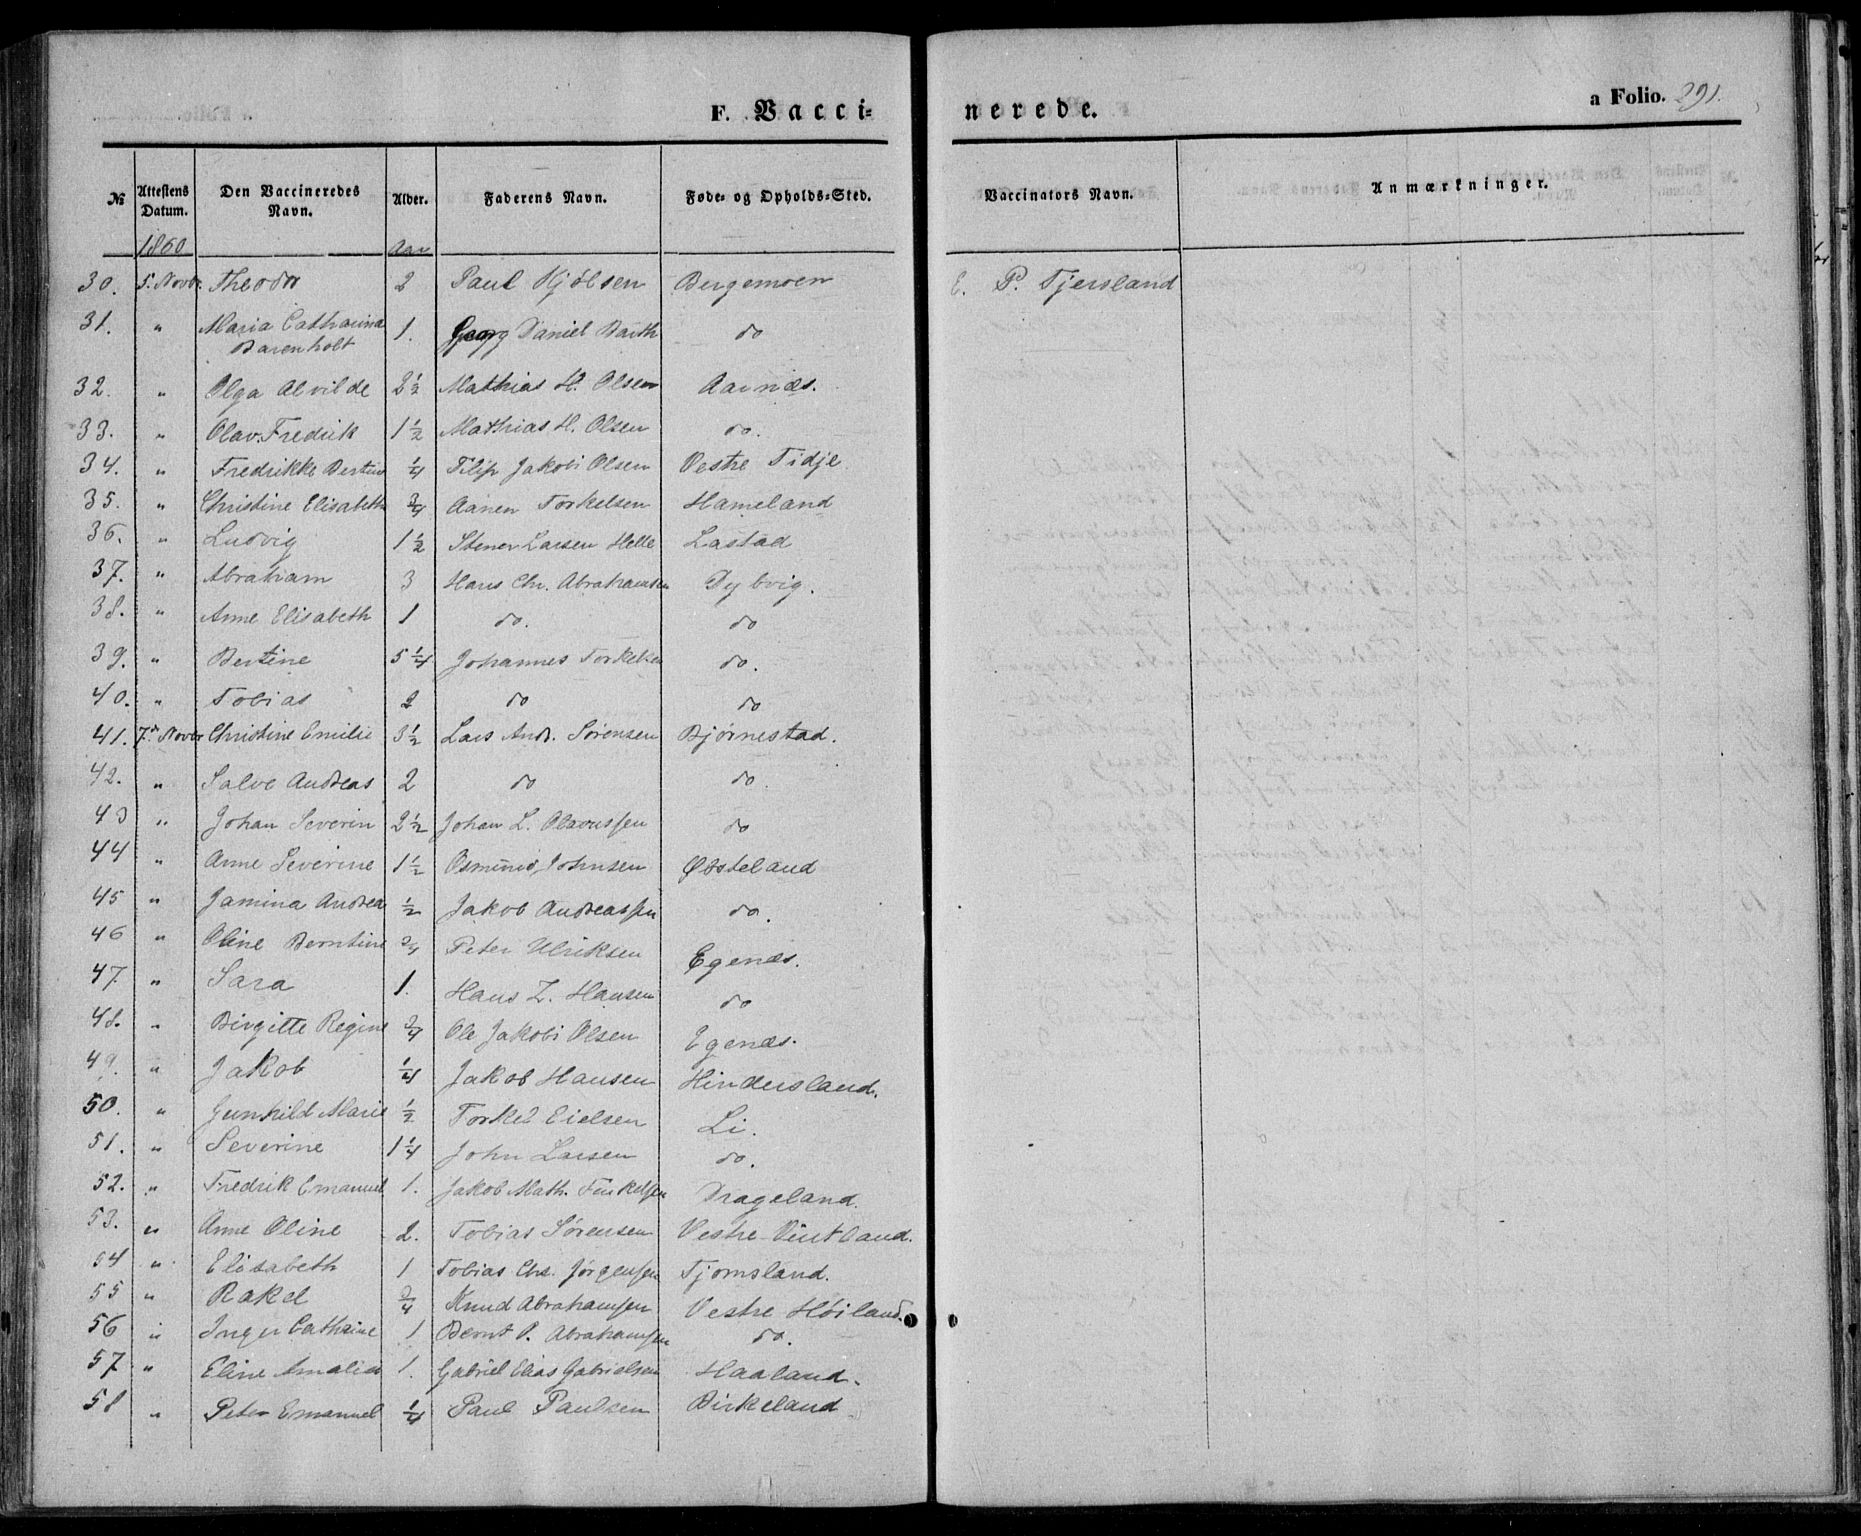 F. Vacci-
nerede.
a Folio. 291.
№ Attestens Datum. Den Vaccineredes Navn. Alder. Faderens Navn. Føde- og Opholds-Sted. Vaccinators Navn. Anmærkninger.
1860 Aar
30. 5. Novbr. Theodor 2 Paul Kjølsen Bergemoen E. P. Tjersland
31. " Maria Catharina 1. Georg Daniel Barth do
Barenholt
32. " Olga Alvilde 2 1/2 Mathias H. Olsen Aarnæs.
33. " Olav Fredrik 1 1/2 Mathias H. Olsen do.
34. " Fredrikke Bertine 1/4 Filip Jakobi Olsen Vestre Tidje
35. " Christine Elisabeth 3/4 Aanen Torkelsen Hameland
36. " Ludvig 1 1/2 Stener Larsen Helle Lastad
37. " Abraham 3 Hans Chr. Abrahamsen Dybvig.
38. " Anne Elisabeth 1 do. do
39. " Bertine 5 1/4 Johannes Torkelsen do.
40. " Tobias 2 do do
41. 7de Novbr Christine Emilie 3 1/2 Lars Andr. Sørensen Bjørnestad.
42. " Salve Andreas 2 do do.
43 " Johan Severin 2 1/2 Johan L. Olavussen do
44 " Anne Severine 1 1/2 Osmund Johnsen Øvsteland
45 " Jamina Andrea 1/2 Jakob Andreassen do.
46 " Oline Berntine 3/4 Peter Ulriksen Egenæs.
47. " Sara 1. Hans Z. Hansen do
48. " Birgitte Regine 3/4 Ole Jakobi Olsen Egenæs.
49. " Jakob 1/4 Jakob Hansen Hindersland.
50. " Gunhild Marie 1/2 Torkel Eielsen Li.
51. " Severine 1 1/4 John Larsen do.
52. " Fredrik Emanuel 1. Jakob Math. Drageland.
53. " Anne Oline 2. Tobias Sørensen Vestre Vintland.
54 " Elisabeth 1 Tobias Chr. Jørgensen Tjomsland.
55 " Rakel 3/4 Knud Abrahamsen Vestre Høiland.
56 " Inger Cathrine 1 Bernt P. Abrahamsen do.
57. " Eline Amalia 1. Gabriel Elias Gabrielsen Haaland.
58 " Peter Emanuel 1/4 Paul Paulsen Birkeland